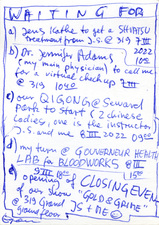 WAITING FOR
a) Jens Kothe to get a SHIATSU
treatment from J.S. @ 319 7 III
2022
b) Dr. Jennifer Adams
(my main physician) to call me
for a virtual check up 7 III
@ 319
c) our QIGONG @ Seward
Park to start (2 chinese
ladies, one is the instructor
JS and me 8 III 2022 0900
d) my turn @ GOUVERNEUR HEALTH
LAB for BLOODWORKS @ 8 III
opening of CLOSING EVEN
of our show "GOLD & GRIME"
@ 319 grand JS + ME
ground floor